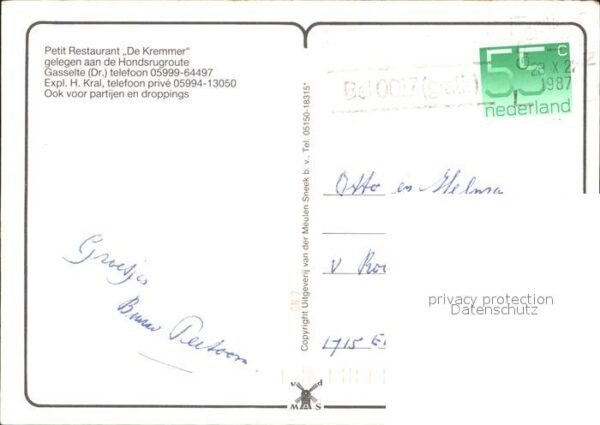 Petit Restaurant „De Kremmer"
gelegen aan de Hondsrugroute
Gasselte (Dr.) telefoon 05999-64497
Expl. H. Kral, telefoon privé 05994-13050
Ook voor partijen en droppings
Copyright Uitgeverij van der Meulen Sneek b. v., Tel. 05150-18315*
55c
nederland
Bel 0017 (gratis)
1987
Otto en Helma
1715 E
Groetjes
v d
M A S
privacy protection
Datenschutz